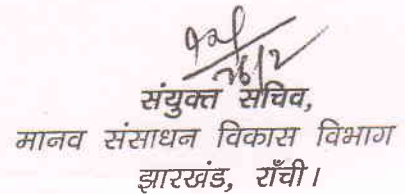 26/2
संयुक्त सचिव,
मानव संसाधन विकास विभाग
झारखंड, राँची।